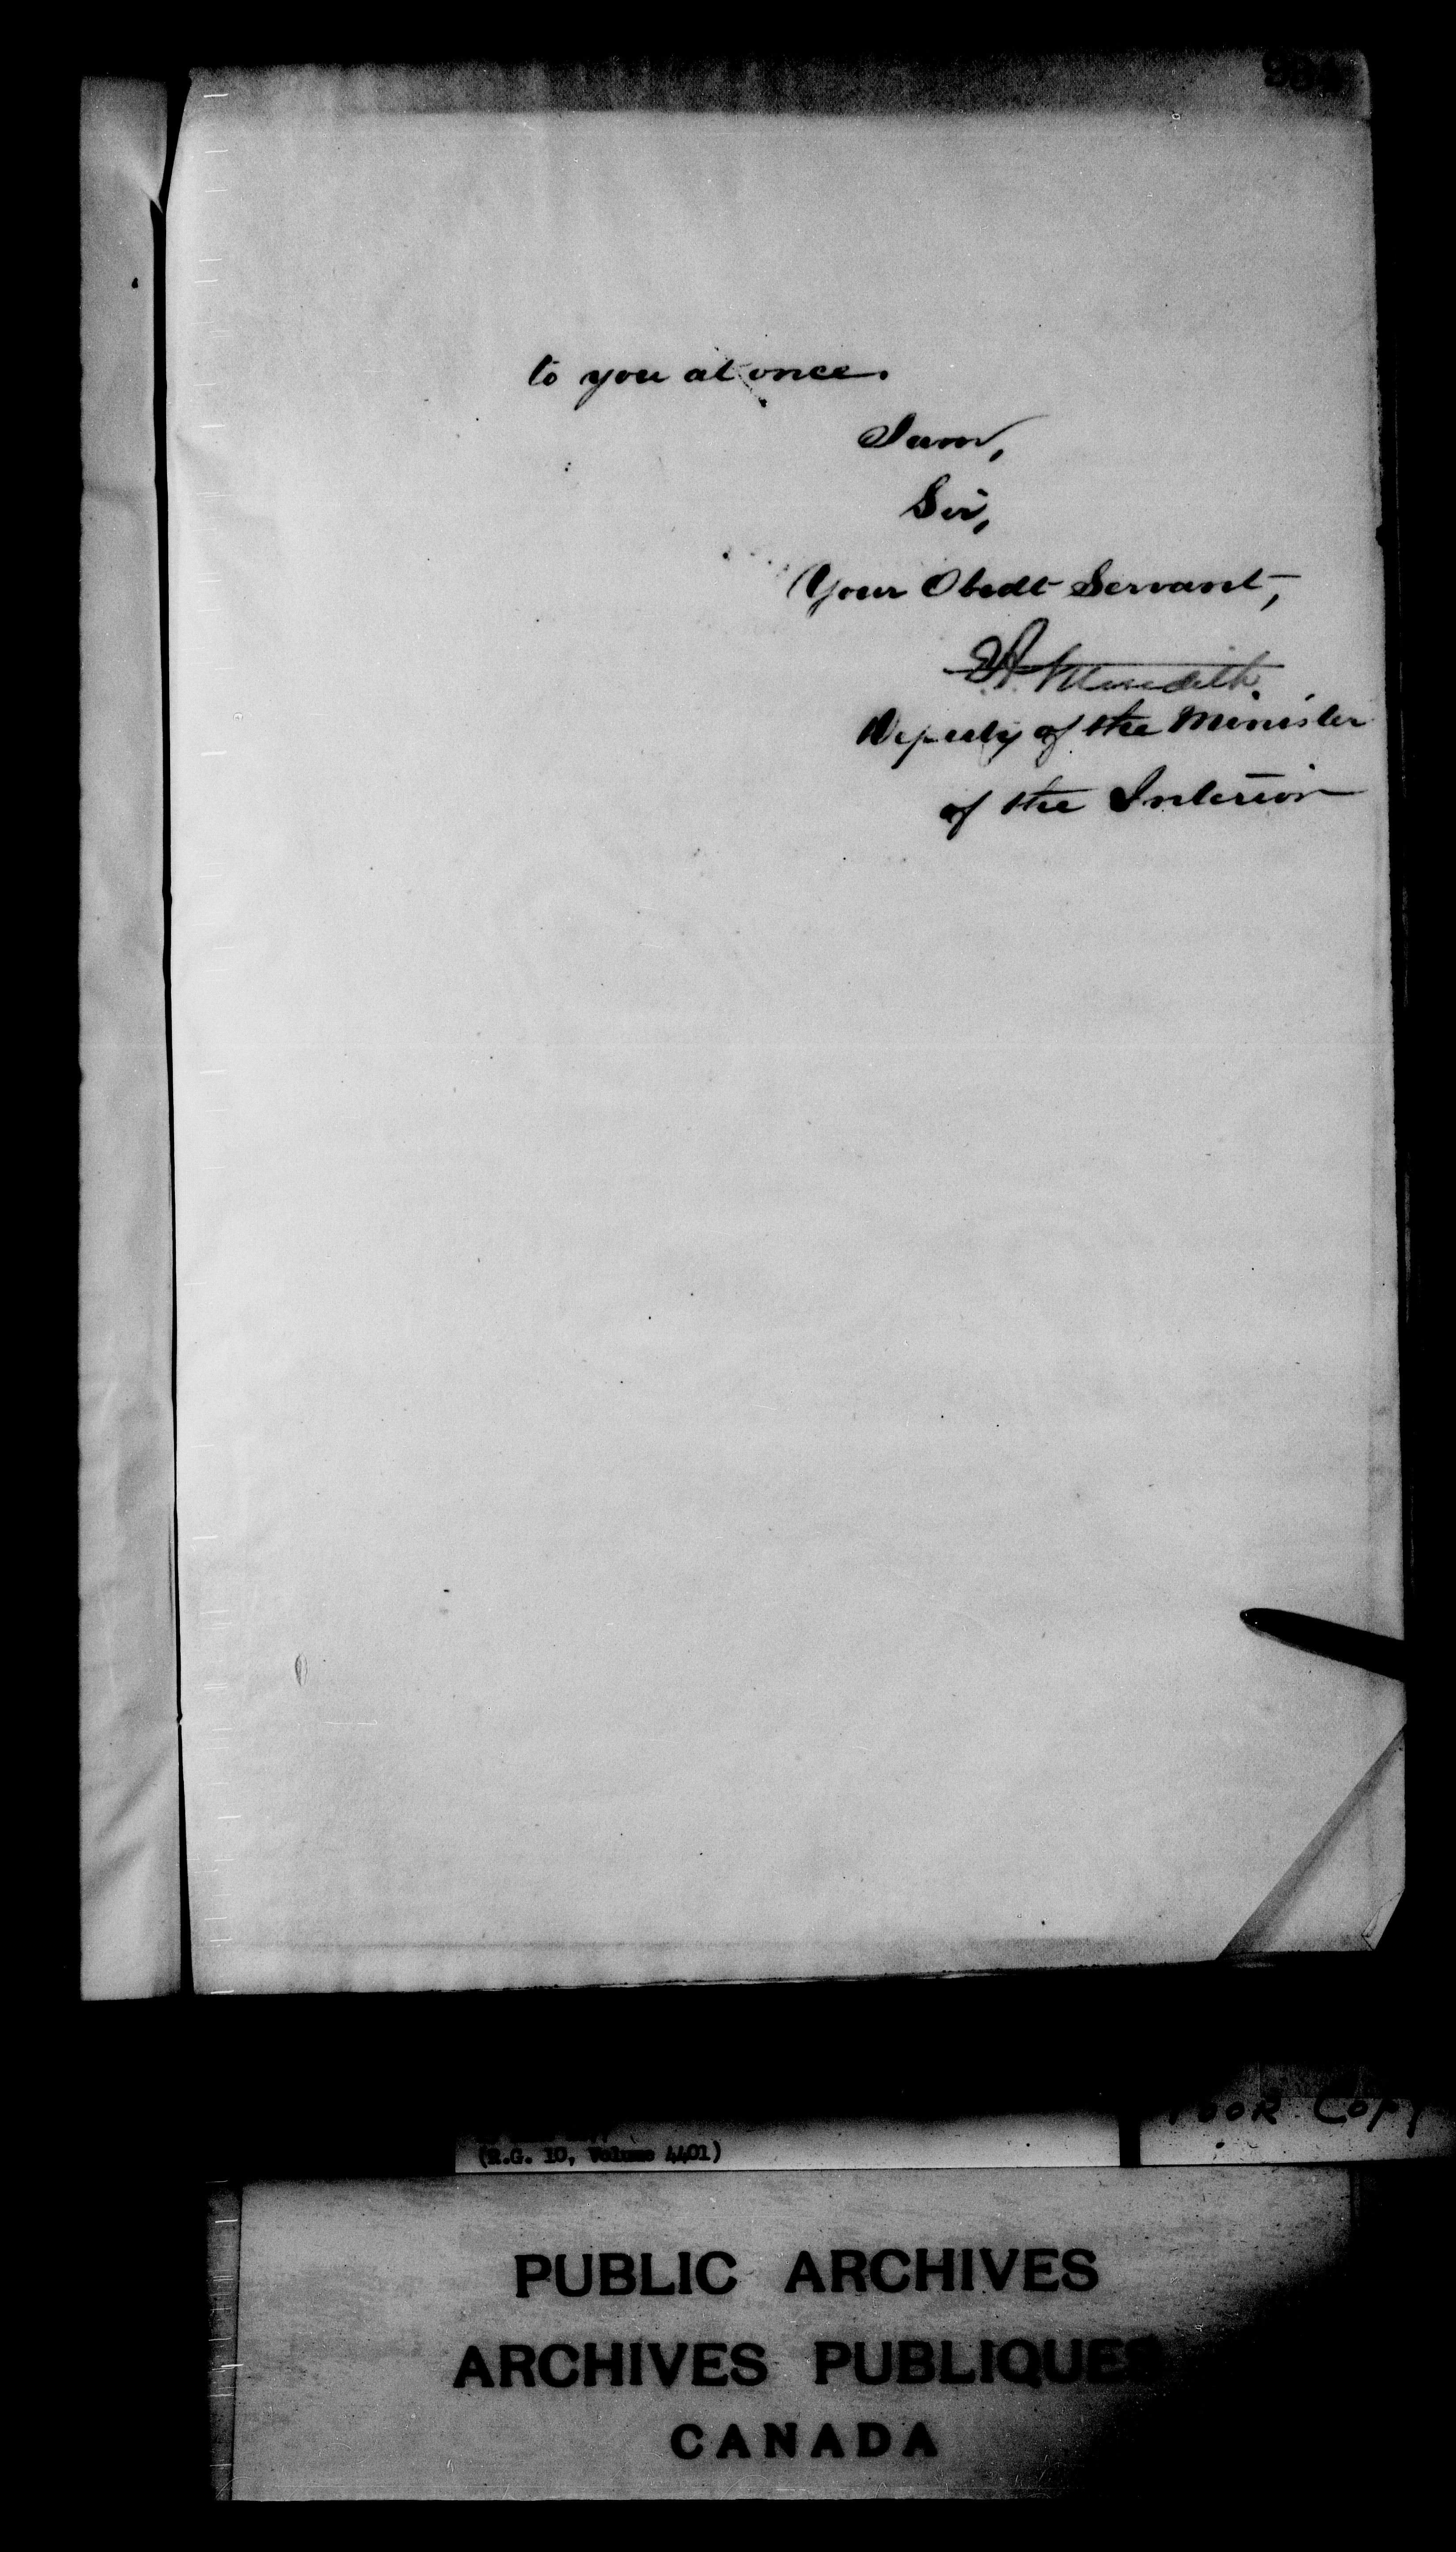 to you at once.
I am,
Sir,
Your Obedt Servant,
E A Meredith
Deputy of the Minister
of the Interior
POOR COPY
(R.G. 10, Volume 4401)
PUBLIC ARCHIVES
ARCHIVES PUBLIQUES
CANADA